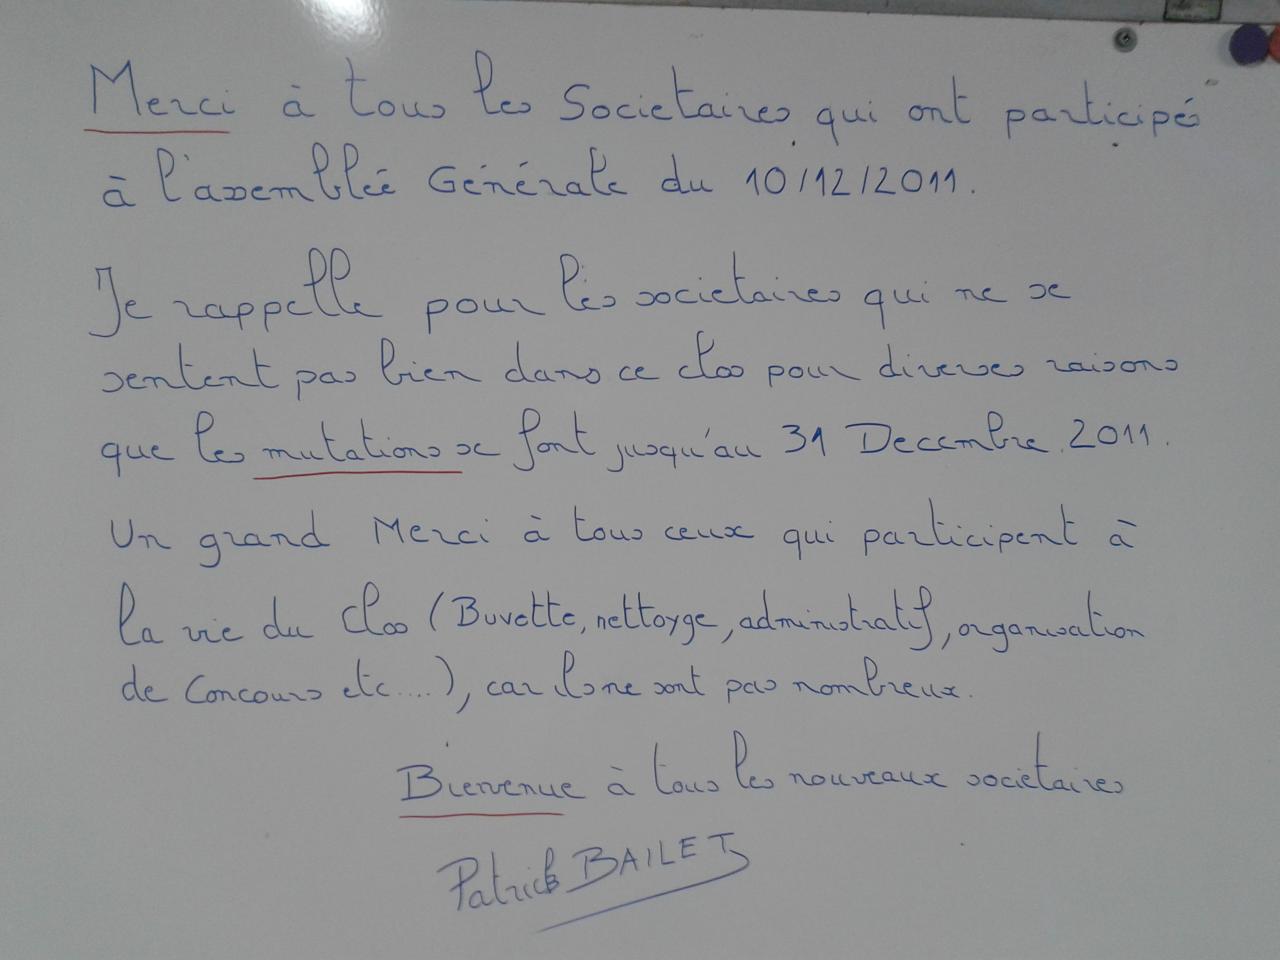 Merci à tous les Societaires qui ont participé
à l'assemblée Générale du 10/12/2011.
Je rappelle pour les societaires qui ne se
sentent pas bien dans ce clos pour diverses raisons
que les mutations se font jusqu'au 31 Decembre 2011.
Un grand Merci à tous ceux qui participent à
la vie du Clos (Buvette, nettoyge, administratif, organisation
de Concours etc....), car ils ne sont pas nombreux.
Bienvenue à tous les nouveaux societaires
Patrick BAILET